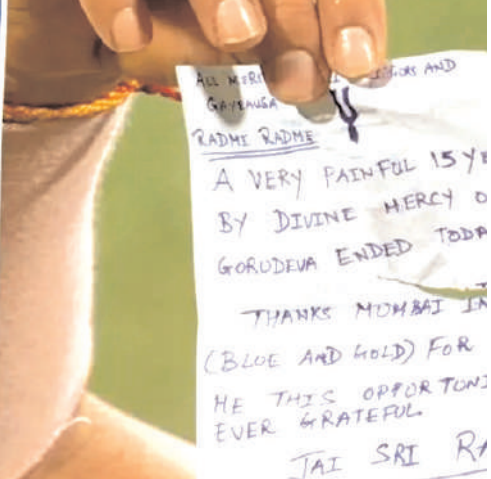 ALL
AND
GAYEAUGA
RADMI RADME
A VERY PAINFUL 15 YE
BY DIVINE MERCY O
GORUDEVA ENDED TODA
THANKS MOMBAI IN
(BLUE AND GOLD) FOR
ME THIS OPPORTUNI
EVER GRATEFUL.
JAI SRI RA